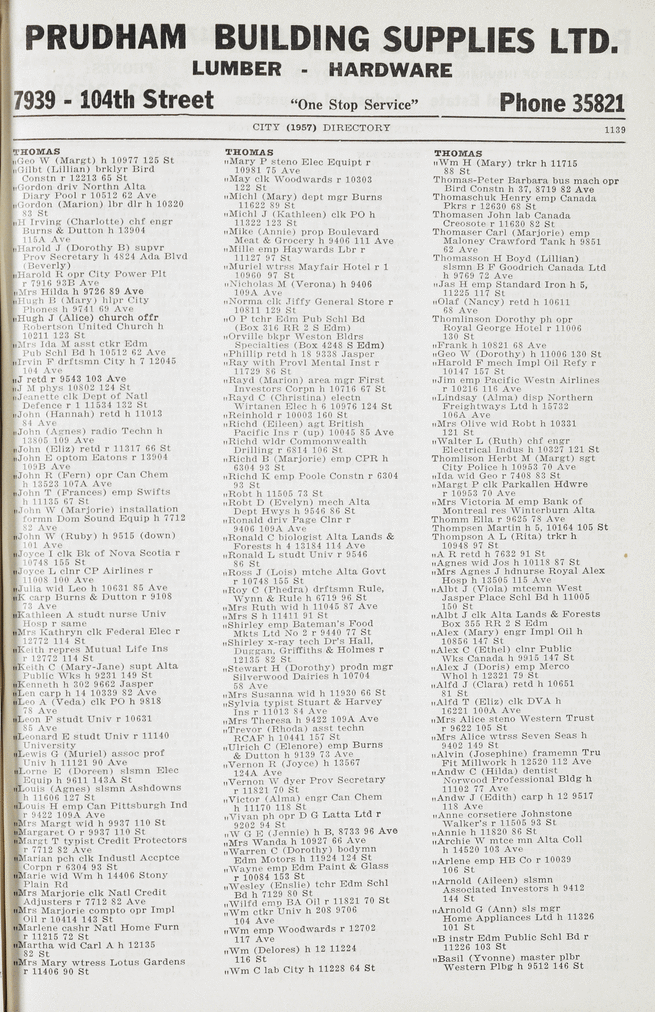 PRUDHAM BUILDING SUPPLIES LTD.
LUMBER - HARDWARE
7939 - 104th Street "One Stop Service" Phone 35821
CITY (1957) DIRECTORY 1139
THOMAS
„Geo W (Margt) h 10977 125 St
„Gilbt (Lillian) brklyr Bird
Constn r 12213 65 St
„Gordon driv Northn Alta
Diary Pool r 10512 62 Ave
„Gordon (Marion) lbr dlr h 10320
83 St
„H Irving (Charlotte) chf engr
Burns & Dutton h 13904
115A Ave
„Harold J (Dorothy B) supvr
Prov Secretary h 4824 Ada Blvd
(Beverly)
„Harold R opr City Power Plt
r 7916 93B Ave
„Mrs Hilda h 9726 89 Ave
„Hugh B (Mary) hlpr City
Phones h 9741 69 Ave
„Hugh J (Alice) church offr
Robertson United Church h
10211 123 St
„Mrs Ida M asst ctkr Edm
Pub Schl Bd h 10512 62 Ave
„Irvin F drftsmn City h 7 12045
104 Ave
„J retd r 9543 103 Ave
„J M phys 10802 124 St
„Jeanette clk Dept of Natl
Defence r 1 11534 132 St
„John (Hannah) retd h 11013
84 Ave
„John (Agnes) radio Techn h
13805 109 Ave
„John (Eliz) retd r 11317 66 St
„John E optom Eatons r 13904
109B Ave
„John R (Fern) opr Can Chem
h 13523 107A Ave
„John T (Frances) emp Swifts
h 11135 67 St
„John W (Marjorie) installation
formn Dom Sound Equip h 7712
82 Ave
„John W (Ruby) h 9515 (down)
101 Ave
„Joyce I clk Bk of Nova Scotia r
10748 155 St
„Joyce L clnr CP Airlines r
11008 100 Ave
„Julia wid Leo h 10631 85 Ave
„K carp Burns & Dutton r 9108
73 Ave
„Kathleen A studt nurse Univ
Hosp r same
„Mrs Kathryn clk Federal Elec r
12772 114 St
„Keith repres Mutual Life Ins
r 12772 114 St
„Keith C (Mary-Jane) supt Alta
Public Wks h 9231 149 St
„Kenneth h 302 9662 Jasper
„Len carp h 14 10339 82 Ave
„Leo A (Veda) clk PO h 9818
78 Ave
„Leon F studt Univ r 10631
85 Ave
„Leonard E studt Univ r 11140
University
„Lewis G (Muriel) assoc prof
Univ h 11121 90 Ave
„Lorne E (Doreen) slsmn Elec
Equip h 9611 143A St
„Louis (Agnes) slsmn Ashdowns
h 11606 127 St
„Louis H emp Can Pittsburgh Ind
r 9422 109A Ave
„Mrs Margt wid h 9937 110 St
„Margaret O r 9937 110 St
„Margt T typist Credit Protectors
r 7712 82 Ave
„Marian pch clk Industl Accptce
Corpn r 6304 93 St
„Marie wid Wm h 14406 Stony
Plain Rd
„Mrs Marjorie clk Natl Credit
Adjusters r 7712 82 Ave
„Mrs Marjorie compto opr Impl
Oil r 10414 143 St
„Marlene cashr Natl Home Furn
r 11215 72 St
„Martha wid Carl A h 12135
82 St
„Mrs Mary wtress Lotus Gardens
r 11406 90 St
THOMAS
„Mary P steno Elec Equipt r
10981 75 Ave
„May clk Woodwards r 10303
122 St
„Michl (Mary) dept mgr Burns
11622 89 St
„Michl J (Kathleen) clk PO h
11322 123 St
„Mike (Annie) prop Boulevard
Meat & Grocery h 9406 111 Ave
„Mille emp Haywards Lbr r
11127 97 St
„Muriel wtrss Mayfair Hotel r 1
10960 97 St
„Nicholas M (Verona) h 9406
109A Ave
„Norma clk Jiffy General Store r
10811 129 St
„O P tchr Edm Pub Schl Bd
(Box 316 RR 2 S Edm)
„Orville bkpr Weston Bldrs
Specialties (Box 4248 S Edm)
„Phillip retd h 18 9338 Jasper
„Ray with Provl Mental Inst r
11729 86 St
„Rayd (Marion) area mgr First
Investors Corpn h 10716 67 St
„Rayd C (Christina) electn
Wirtanen Elec h 6 10976 124 St
„Reinhold r 10003 160 St
„Richd (Eileen) agt British
Pacific Ins r (up) 10045 85 Ave
„Richd wldr Commonwealth
Drilling r 6814 106 St
„Richd B (Marjorie) emp CPR h
6304 93 St
„Richd K emp Poole Constn r 6304
93 St
„Robt h 11505 73 St
„Robt D (Evelyn) mech Alta
Dept Hwys h 9546 86 St
„Ronald driv Page Clnr r
9406 109A Ave
„Ronald C biologist Alta Lands &
Forests h 4 13184 114 Ave
„Ronald L studt Univ r 9546
86 St
„Ross J (Lois) mtche Alta Govt
r 10748 155 St
„Roy C (Phedra) drftsmn Rule,
Wynn & Rule h 6719 96 St
„Mrs Ruth wid h 11045 87 Ave
„Mrs S h 11411 91 St
„Shirley emp Bateman's Food
Mkts Ltd No 2 r 9440 77 St
„Shirley x-ray tech Dr's Hall,
Duggan, Griffiths & Holmes r
12135 82 St
„Stewart H (Dorothy) prodn mgr
Silverwood Dairies h 10704
58 Ave
„Mrs Susanna wid h 11930 66 St
„Sylvia typist Stuart & Harvey
Ins r 11013 84 Ave
„Mrs Theresa h 9422 109A Ave
„Trevor (Rhoda) asst techn
RCAF h 10441 157 St
„Ulrich C (Elenore) emp Burns
& Dutton h 9139 73 Ave
„Vernon R (Joyce) h 13567
124A Ave
„Vernon W dyer Prov Secretary
r 11821 70 St
„Victor (Alma) engr Can Chem
h 11170 118 St
„Vivan ph opr D G Latta Ltd r
9202 94 St
„W G E (Jennie) h B, 8733 96 Ave
„Mrs Wanda h 10927 66 Ave
„Warren C (Dorothy) bodymn
Edm Motors h 11924 124 St
„Wayne emp Edm Paint & Glass
r 10084 153 St
„Wesley (Enslie) tchr Edm Schl
Bd h 7129 80 St
„Wilfd emp BA Oil r 11821 70 St
„Wm ctkr Univ h 208 9706
104 Ave
„Wm emp Woodwards r 12702
117 Ave
„Wm (Delores) h 12 11224
116 St
„Wm C lab City h 11228 64 St
THOMAS
„Wm H (Mary) trkr h 11715
88 St
Thomas-Peter Barbara bus mach opr
Bird Constn h 37, 8719 82 Ave
Thomaschuk Henry emp Canada
Pkrs r 12630 68 St
Thomasen John lab Canada
Creosote r 11630 82 St
Thomaser Carl (Marjorie) emp
Maloney Crawford Tank h 9851
62 Ave
Thomasson H Boyd (Lillian)
slsmn B F Goodrich Canada Ltd
h 9769 72 Ave
„Jas H emp Standard Iron h 5,
11225 117 St
„Olaf (Nancy) retd h 10611
68 Ave
Thomlinson Dorothy ph opr
Royal George Hotel r 11006
130 St
„Frank h 10821 68 Ave
„Geo W (Dorothy) h 11006 130 St
„Harold F mech Impl Oil Refy r
10147 157 St
„Jim emp Pacific Westn Airlines
r 10216 116 Ave
„Lindsay (Alma) disp Northern
Freightways Ltd h 15732
106A Ave
„Mrs Olive wid Robt h 10331
121 St
„Walter L (Ruth) chf engr
Electrical Indus h 10327 121 St
Thomlison Herbt M (Margt) sgt
City Police h 10953 70 Ave
„Ida wid Geo r 7408 83 St
„Margt P clk Parkallen Hdwre
r 10953 70 Ave
„Mrs Victoria M emp Bank of
Montreal res Winterburn Alta
Thomm Ella r 9625 78 Ave
Thompsen Martin h 5, 10164 105 St
Thompson A L (Rita) trkr h
10948 97 St
„A R retd h 7632 91 St
„Agnes wid Jos h 10118 87 St
„Mrs Agnes J hdnurse Royal Alex
Hosp h 13505 115 Ave
„Albt J (Viola) mtcemn West
Jasper Place Schl Bd h 11005
150 St
„Albt J clk Alta Lands & Forests
Box 355 RR 2 S Edm
„Alex (Mary) engr Impl Oil h
10856 147 St
„Alex C (Ethel) clnr Public
Wks Canada h 9915 147 St
„Alex J (Doris) emp Merco
Whol h 12321 79 St
„Alfd J (Clara) retd h 10651
81 St
„Alfd T (Eliz) clk DVA h
16221 100A Ave
„Mrs Alice steno Western Trust
r 9622 105 St
„Mrs Alice wtrss Seven Seas h
9402 149 St
„Alvin (Josephine) framemn Tru
Fit Millwork h 12520 112 Ave
„Andw C (Hilda) dentist
Norwood Professional Bldg h
11102 77 Ave
„Andw J (Edith) carp h 12 9517
118 Ave
„Anne corsetiere Johnstone
Walker's r 11505 93 St
„Annie h 11820 86 St
„Archie W mtce mn Alta Coll
h 14520 103 Ave
„Arlene emp HB Co r 10039
106 St
„Arnold (Aileen) slsmn
Associated Investors h 9412
144 St
„Arnold G (Ann) sls mgr
Home Appliances Ltd h 11326
101 St
„B instr Edm Public Schl Bd r
11226 103 St
„Basil (Yvonne) master plbr
Western Plbg h 9512 146 St